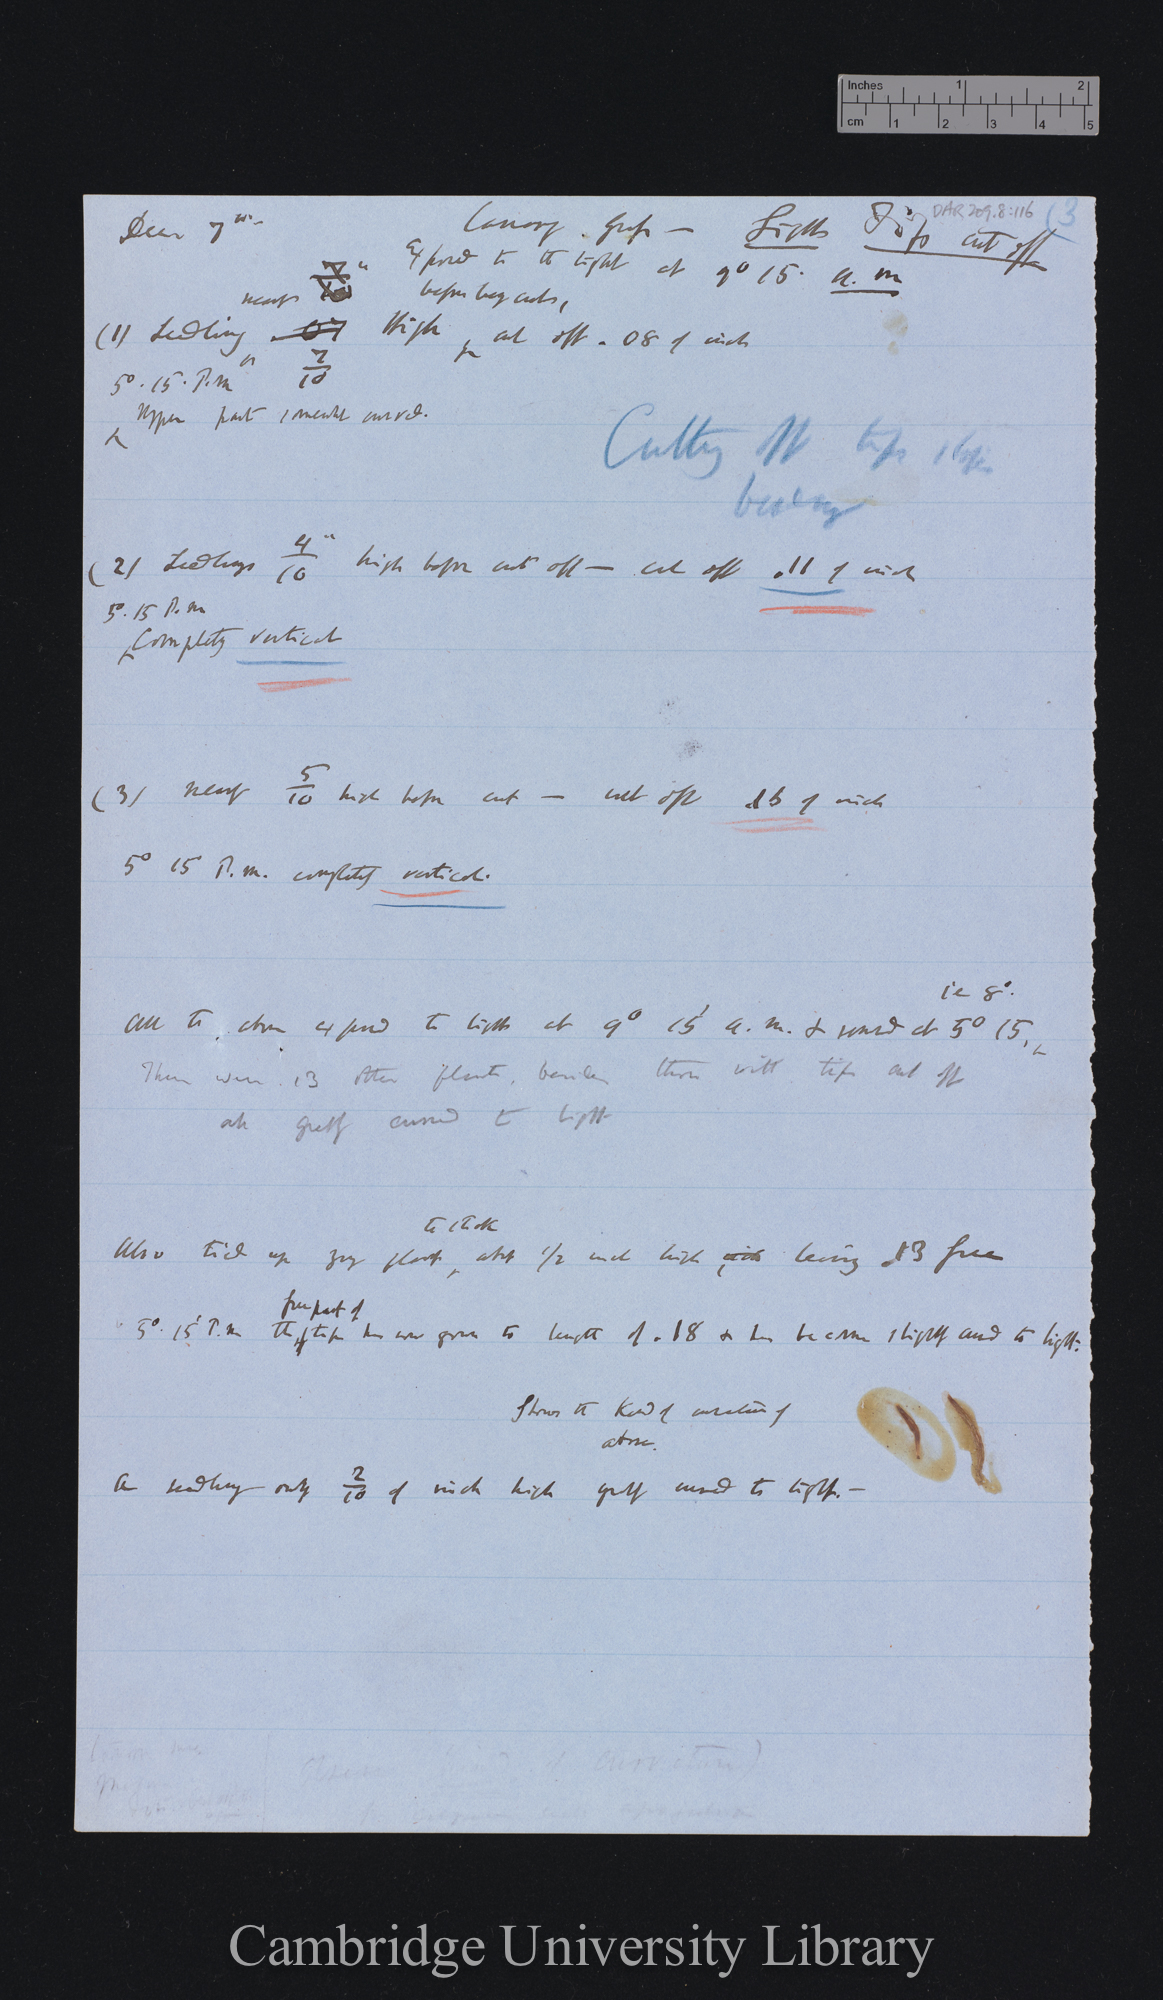 Inches 1 2
cm 1 2 3 4 5
DAR 209.8:116 (3
Canary Grass — Light Tips cut off
Exposed to the light at 9° 15' a.m
nearly 7/10" before being cut,
(1) Seedling High, cut off .08 of inch
7/10
5°. 15. P.m
Upper part somewhat curved.
Cutting off tips stops
bending
(2) Seedlings 4/10" high before cut off — cut off .11 of inch
5°. 15 P.m
Completely vertical
(3) nearly 5/10 high before cut — cut off .16 of inch
5° 15 P.m. completely vertical.
ie 8°.
All the above exposed to light at 9° 15' a.m. & removed at 5° 15,
There were 13 other plants, besides those with tips cut off
all greatly curved to light
to stick
Also tied up young plant, abt 1/2 inch high, leaving .13 free
free part of
5°. 15' P.m the tip has now grown to length of .18 & has become slightly curved to light.
Shows the kind of curvature of
above.
A seedling only 2/10 of inch high greatly curved to light. —
Cambridge University Library